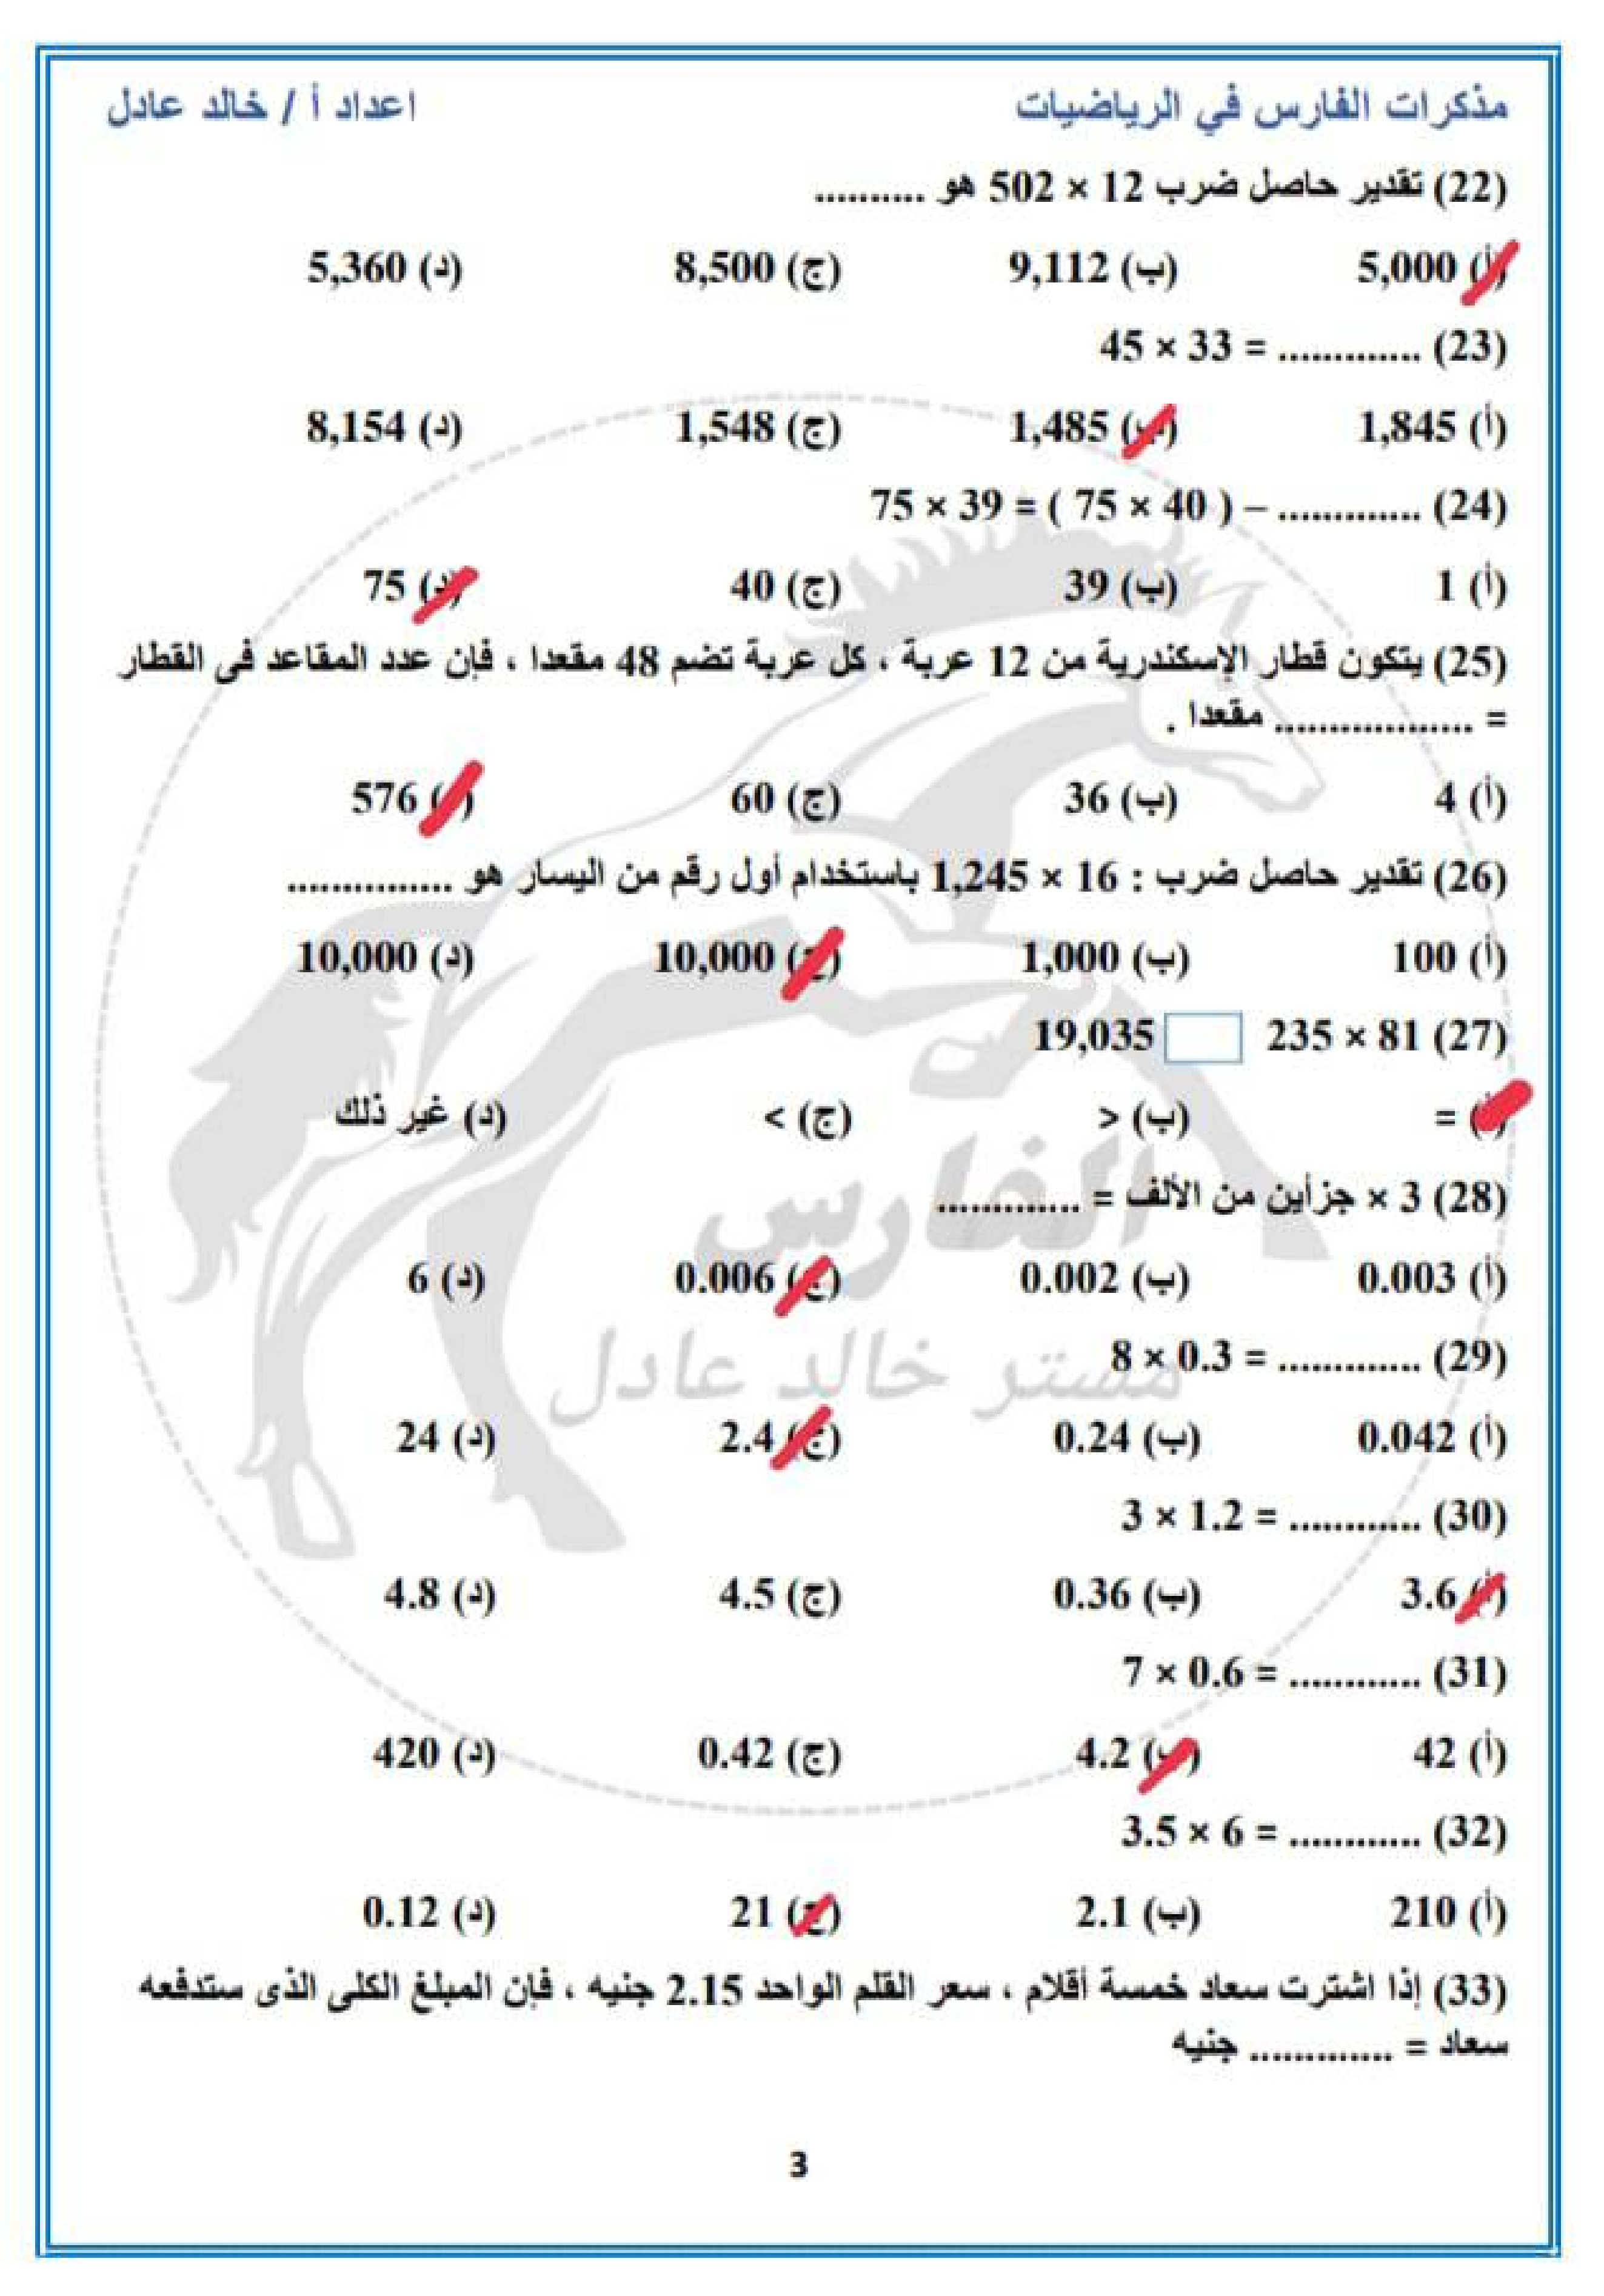 مذكرات الفارس في الرياضيات اعداد أ / خالد عادل
(22) تقدير حاصل ضرب 12 × 502 هو ..........
(أ) 5,000 (ب) 9,112 (ج) 8,500 (د) 5,360
(23) ............. = 33 × 45
(أ) 1,845 (ب) 1,485 (ج) 1,548 (د) 8,154
(24) ............. – ( 40 × 75 ) = 39 × 75
(أ) 1 (ب) 39 (ج) 40 (د) 75
(25) يتكون قطار الإسكندرية من 12 عربة ، كل عربة تضم 48 مقعدا ، فإن عدد المقاعد فى القطار
= .................. مقعدا .
(أ) 4 (ب) 36 (ج) 60 (د) 576
(26) تقدير حاصل ضرب : 16 × 1,245 باستخدام أول رقم من اليسار هو ...............
(أ) 100 (ب) 1,000 (ج) 10,000 (د) 10,000
(27) 235 × 81 19,035
(أ) = (ب) > (ج) < (د) غير ذلك
الفارس
(28) 3 × جزأين من الألف = .............
(أ) 0.003 (ب) 0.002 (ج) 0.006 (د) 6
(29) ............. = 0.3 × 8
مستر خالد عادل
(أ) 0.042 (ب) 0.24 (ج) 2.4 (د) 24
(30) ............ = 1.2 × 3
(أ) 3.6 (ب) 0.36 (ج) 4.5 (د) 4.8
(31) ............ = 0.6 × 7
(أ) 42 (ب) 4.2 (ج) 0.42 (د) 420
(32) ............ = 6 × 3.5
(أ) 210 (ب) 2.1 (ج) 21 (د) 0.12
(33) إذا اشترت سعاد خمسة أقلام ، سعر القلم الواحد 2.15 جنيه ، فإن المبلغ الكلى الذى ستدفعه
سعاد = ............. جنيه
3